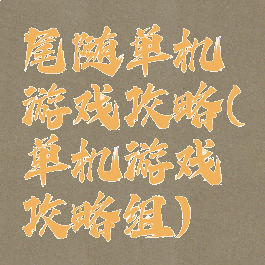 尾随单机
游戏攻略(
单机游戏
攻略组)